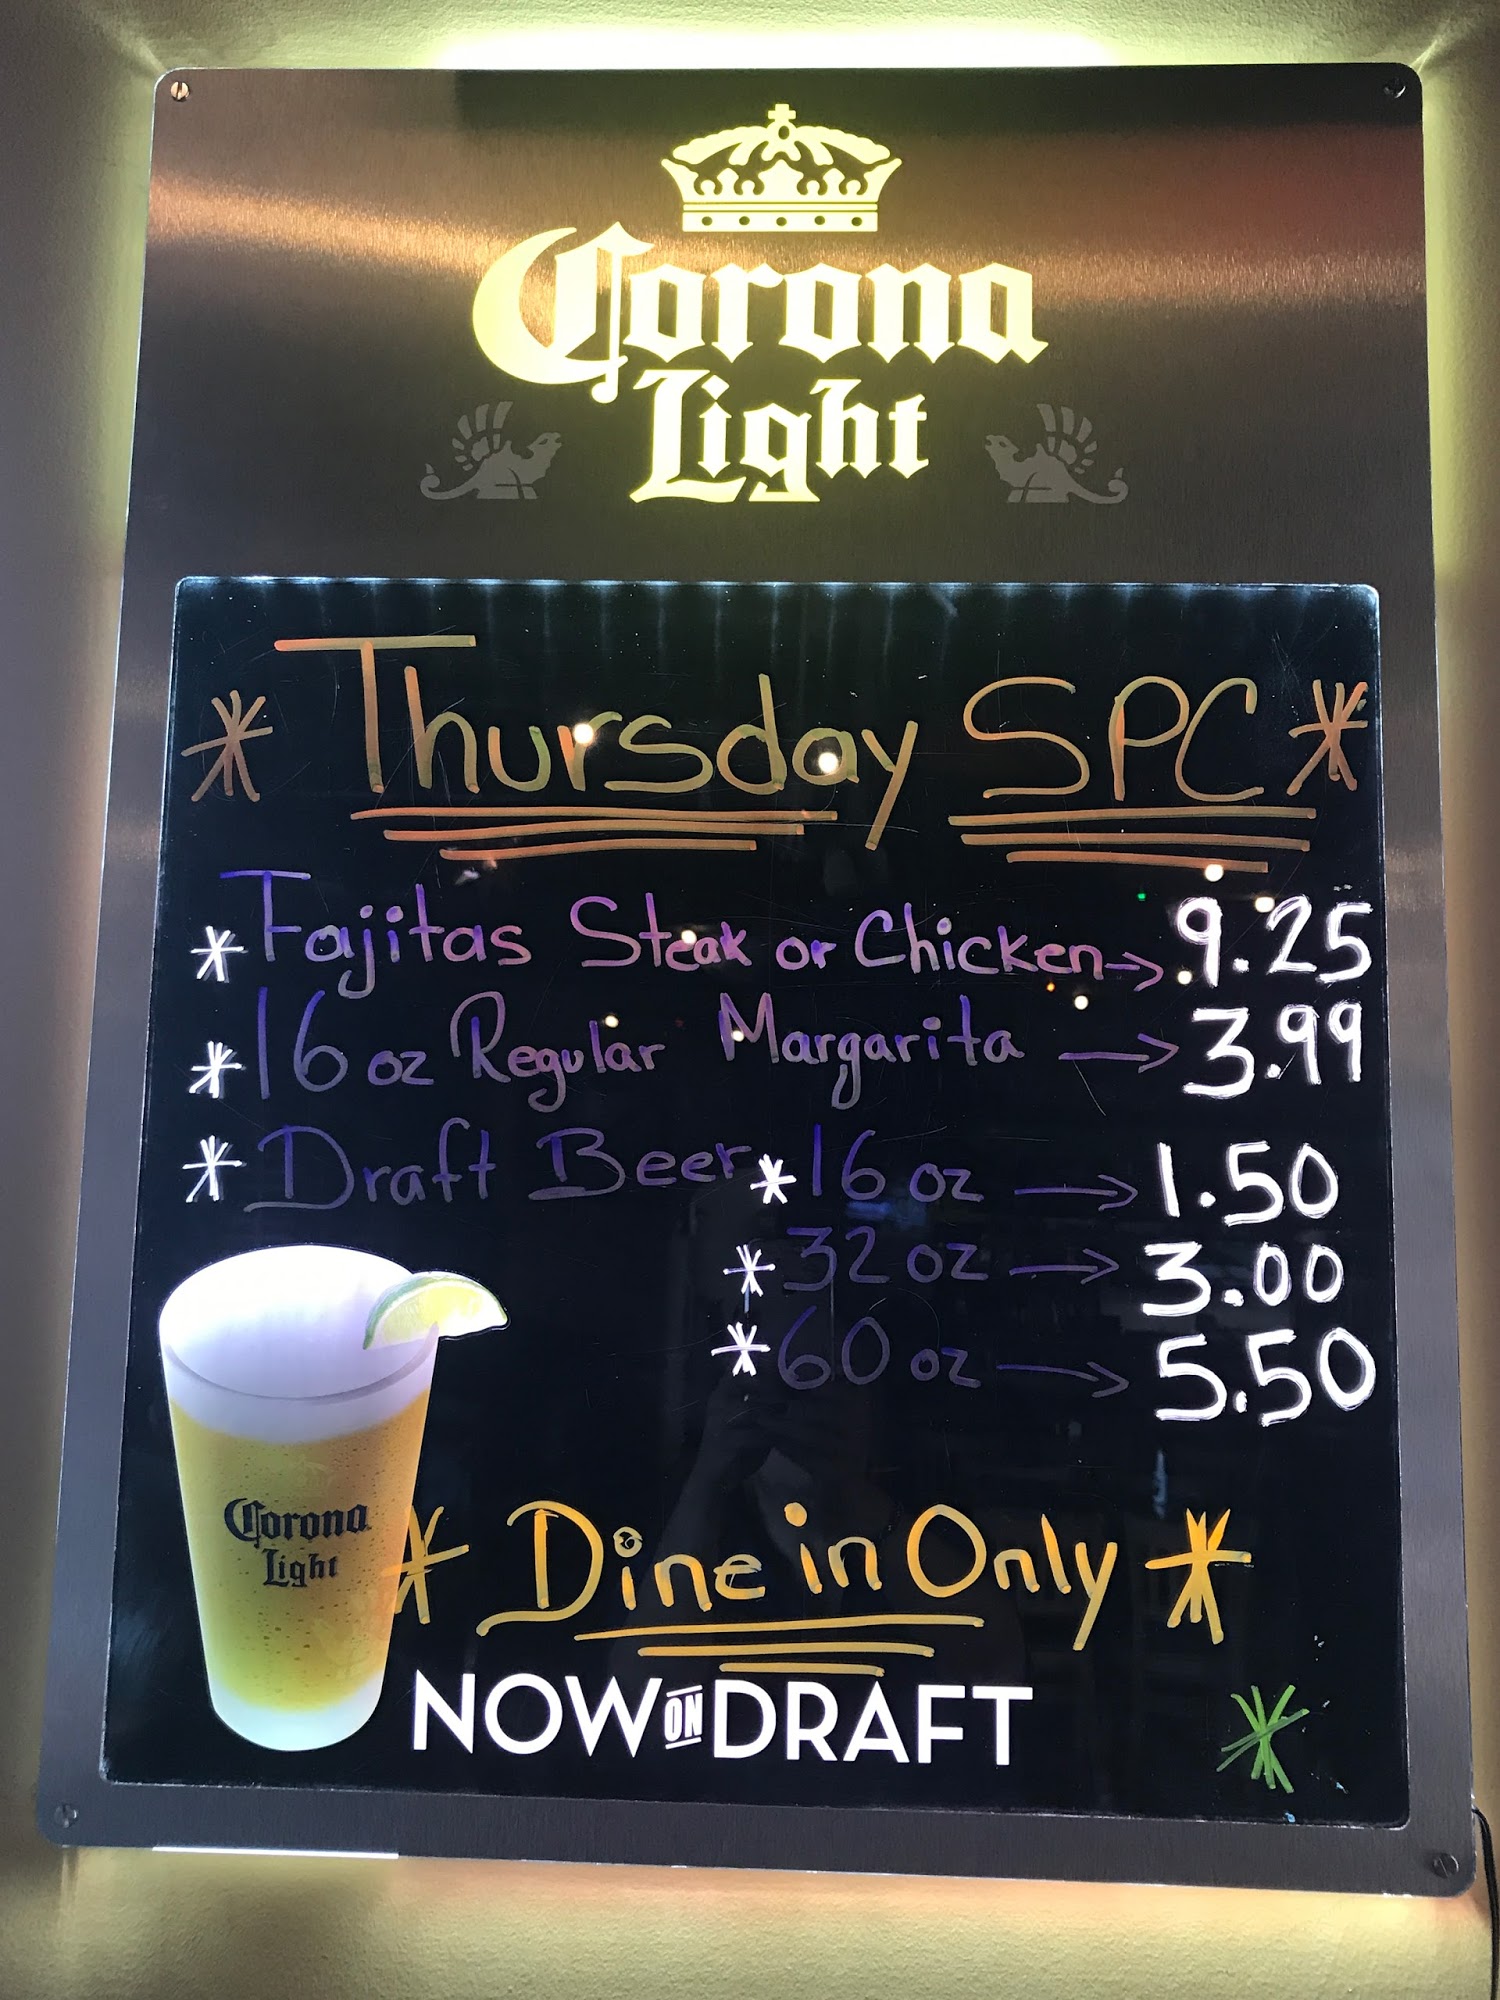 Corona
Light
* Thursday SPC *
* Fajitas Steak or Chicken → 9.25
* 16 oz Regular Margarita → 3.99
* Draft Beer * 16 oz → 1.50
* 32 oz → 3.00
* 60 oz → 5.50
Corona
Light
* Dine in Only *
NOW ON DRAFT